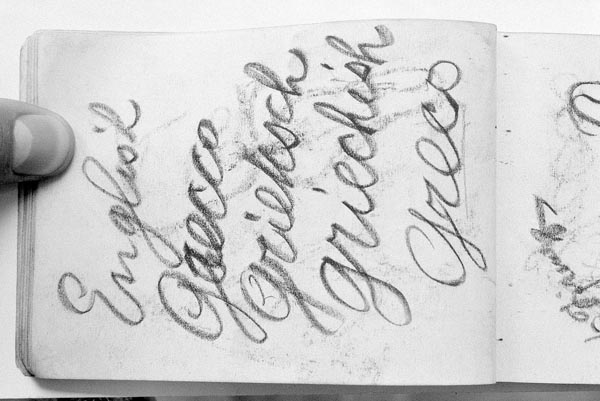 English
Gaecco
Grieksch
griechish
Greco